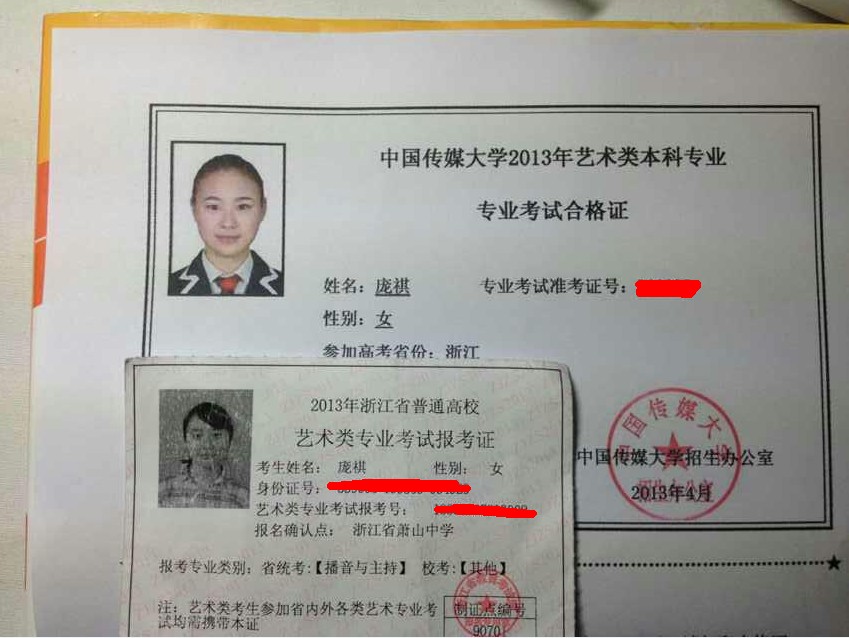 中国传媒大学2013年艺术类本科专业
专业考试合格证
姓名：庞祺
专业考试准考证号：
性别：女
参加高考省份：浙江
中国传媒大学
中国传媒大学招生办公室
2013年4月
2013年浙江省普通高校
艺术类专业考试报考证
考生姓名： 庞祺 性别： 女
身份证号：
艺术类专业考试报考号：
报名确认点： 浙江省萧山中学
报考专业类别：省统考:【播音与主持】 校考:【其他】
注：艺术类考生参加省内外各类艺术专业考
试均需携带本证
制证点编号
9070